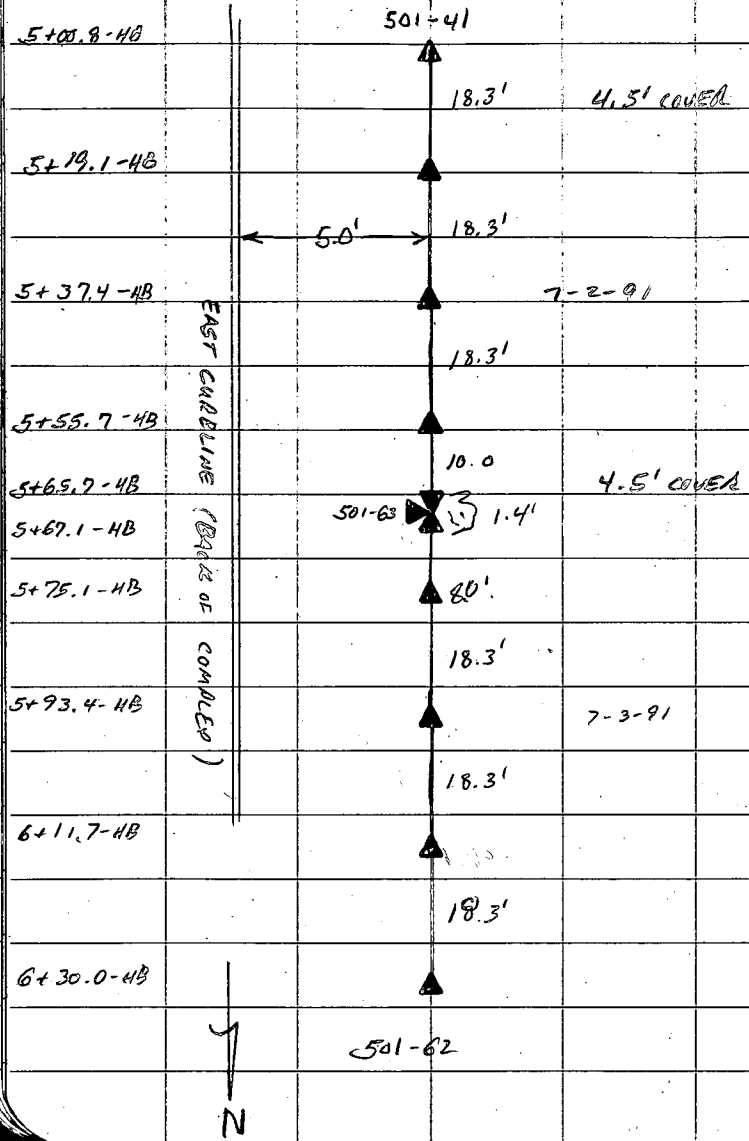 501-41
5+00.8-HB
18.3' 4.5' COVER
5+19.1-HB
5.0' 18.3'
5+37.4-HB 7-2-91
EAST CURBLINE (BACK OF COMPLEX)
18.3'
5+55.7-HB
10.0
5+65.7-HB 4.5' COVER
501-63 1.4'
5+67.1-HB
5+75.1-HB 8.0'
18.3'
5+93.4-HB 7-3-91
18.3'
6+11.7-HB
18.3'
6+30.0-HB
501-62
N